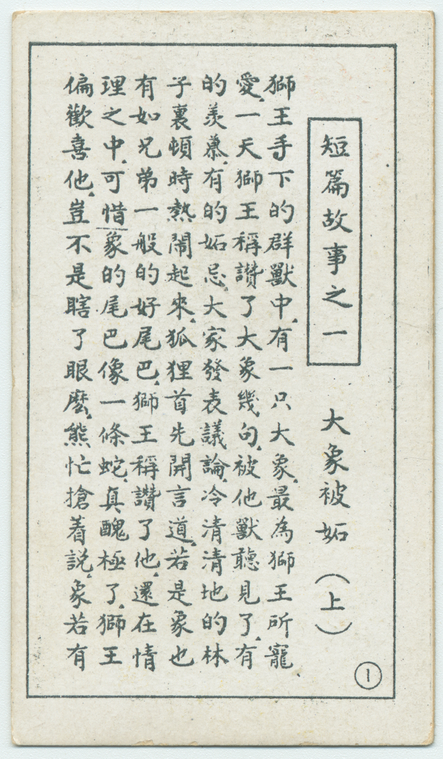 短篇故事之一
大象被妬（上）
獅王手下的群獸中，有一只大象，最為獅王所寵
愛，一天獅王稱讚了大象幾句，被他獸聽見了，有
的羨慕，有的妬忌，大家發表議論，冷清清地的林
子裏頓時熱鬧起來，狐狸首先開言道，若是象也
有如兄弟一般的好尾巴，獅王稱讚了他，還在情
理之中，可惜象的尾巴像一條蛇，真醜極了，獅王
偏歡喜他，豈不是瞎了眼麽，熊忙搶着說，象若有
1